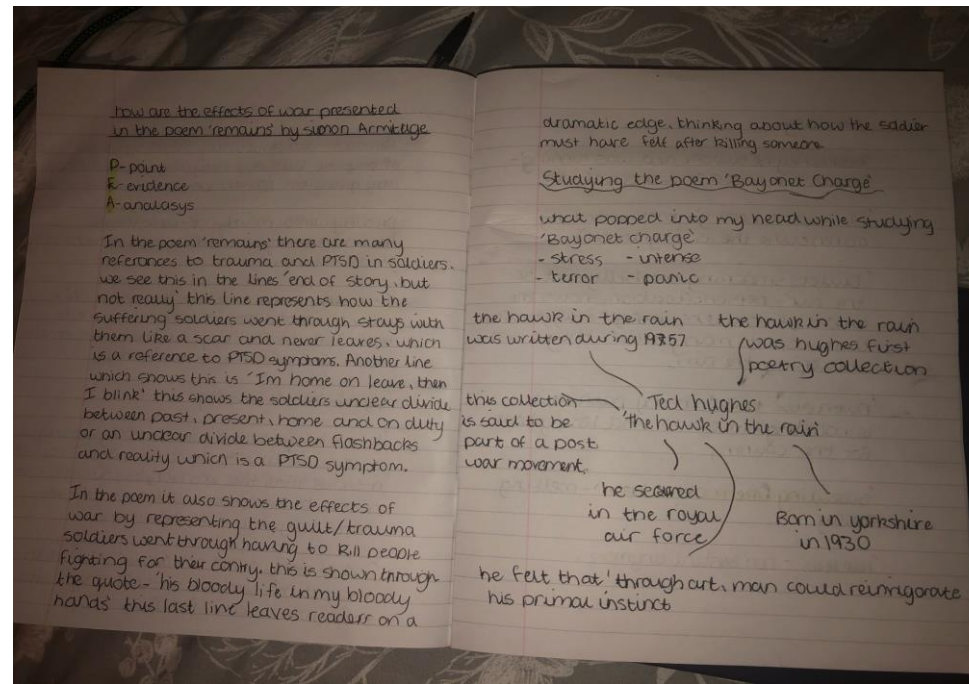 how are the effects of war presented
in the poem 'remains' by simon Armitage
P- point
E- evidence
A- analasys
In the poem 'remains' there are many
references to trauma and PTSD in soldiers.
we see this in the lines 'end of story, but
not really' this line represents how the
suffering soldiers went through stays with
them like a scar and never leaves. which
is a reference to PTSD symptoms. Another line
which shows this is 'Im home on leave, then
I blink' this shows the soldiers unclear divide
between past, present, home and on duty
or an unclear divide between flashbacks
and reality which is a PTSD symptom.
In the poem it also shows the effects of
war by representing the guilt/trauma
soldiers went through having to kill people
fighting for their contry. this is shown through
the quote - 'his bloody life in my bloody
hands' this last line leaves readers on a
dramatic edge. thinking about how the soldier
must have felt after killing someone
Studying the poem 'Bayonet Charge'
what popped into my head while studying
'Bayonet charge'
- stress - intense
- terror - panic
the hawk in the rain
was written during 1957
the hawk in the rain
was hughes first
poetry collection
this collection
is said to be
part of a post
war movement.
Ted hughes
'the hawk in the rain'
he
in the royal
air force
Born in yorkshire
in 1930
he felt that 'through art, man could reinvigorate
his primal instinct